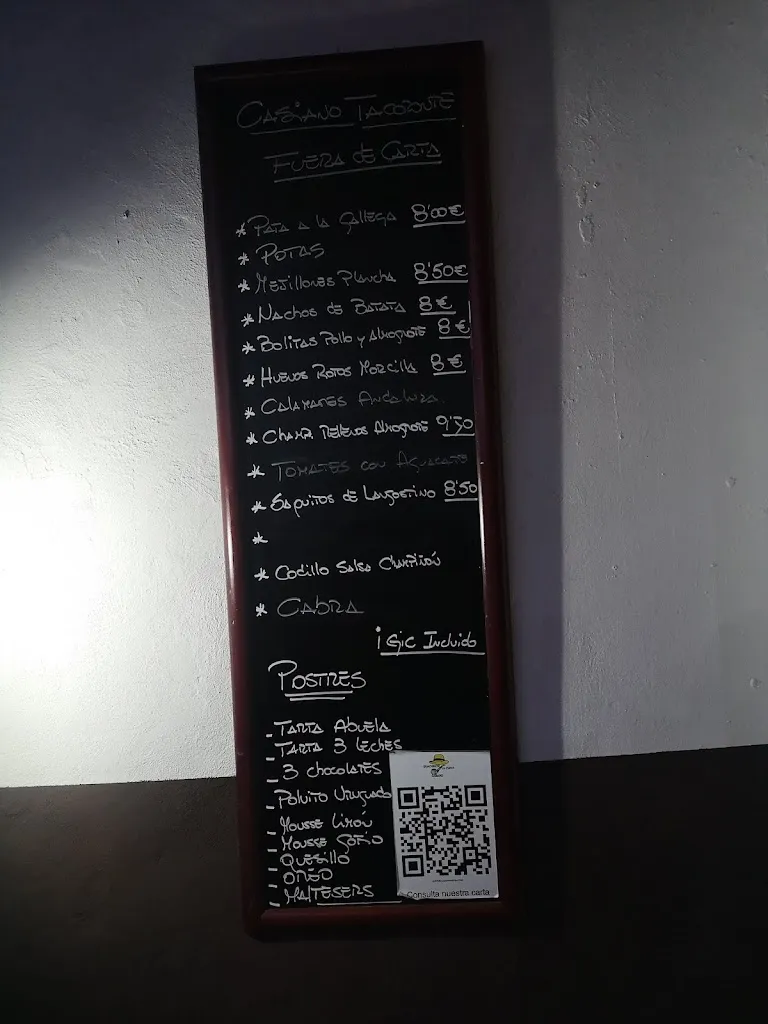 Casiano Tacoronte
Fuera de Carta
* Pata a la Gallega 8'00€
* Potas
* Mejillones Plancha 8'50€
* Nachos de Batata 8€
* Bolitas Pollo y Almogrote 8€
* Huevos Rotos Morcilla 8€
* Calamares Andaluza
* Champ. Rellenos Almogrote 9'50
* Tomates con Aguacate
* Saquitos de Langostino 8'50
*
* Codillo Salsa Champiñón
* Cabra
iGic Incluido
Postres
- Tarta Abuela
- Tarta 3 leches
- 3 chocolates
- Polvito Uruguado
- Mousse Limón
- Mousse Gofio
- Quesillo
- Oreo
- Maltesers
Consulta nuestra carta